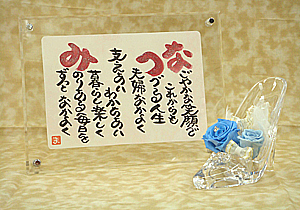 なごやかな笑顔で
これからも
つづる人生
夫婦なかよく
支えあい
わかちあい
暮らし楽しく
みのりある毎日を
ずっとなかよく